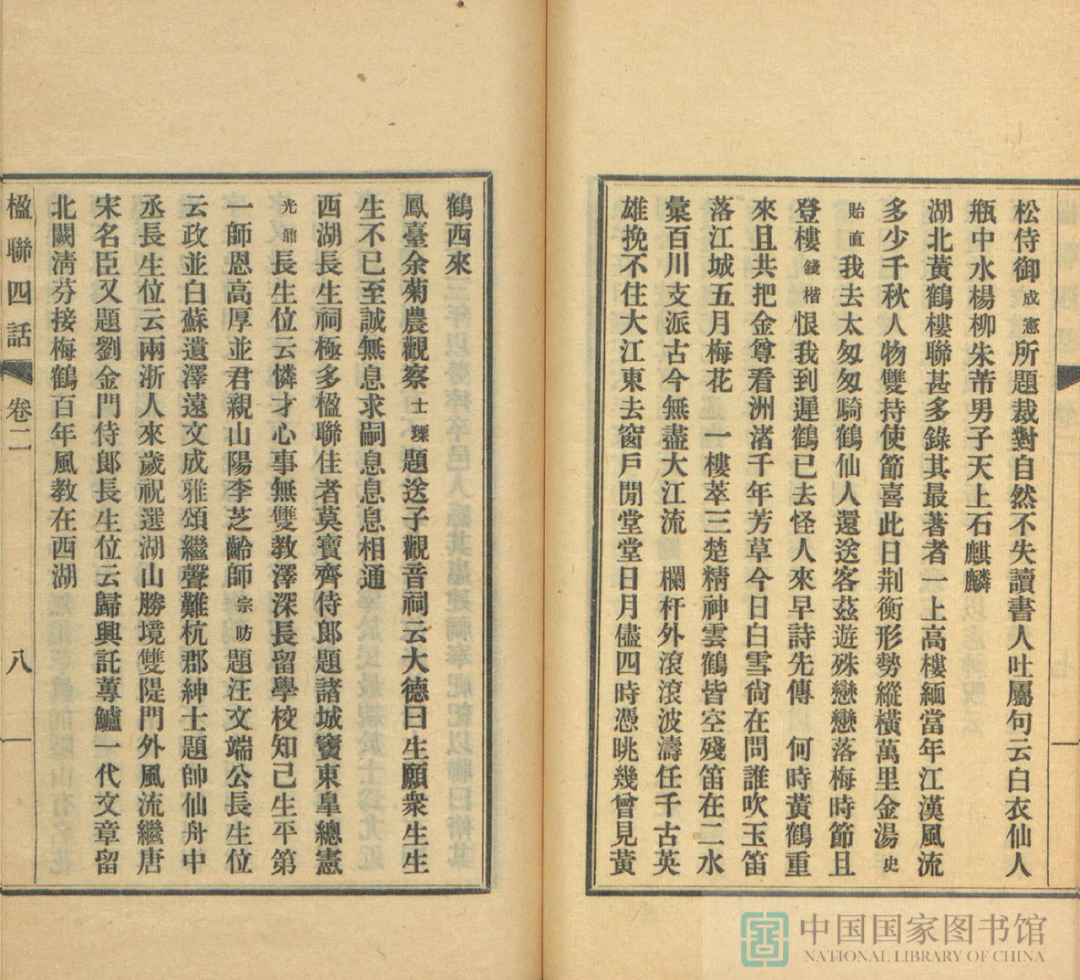 松侍御成憲所題裁對自然不失讀書人吐屬句云白衣仙人
瓶中水楊柳朱芾男子天上石麒麟
湖北黃鶴樓聯甚多錄其最著者一上高樓緬當年江漢風流
多少千秋人物雙持使節喜此日荆衡形勢縱橫萬里金湯史
貽直我去太匆匆騎鶴仙人還送客茲遊殊戀戀落梅時節且
登樓錢楷恨我到遲鶴已去怪人來早詩先傳 何時黃鶴重
來且共把金尊看洲渚千年芳草今日白雪尙在問誰吹玉笛
落江城五月梅花 一樓萃三楚精神雲鶴皆空殘笛在二水
彙百川支派古今無盡大江流 欄杆外滾滾波濤任千古英
雄挽不住大江東去窗戶閒堂堂日月儘四時憑眺幾曾見黃
鶴西來
鳳臺余菊農觀察士瑮題送子觀音祠云大德曰生願衆生生
生不已至誠無息求嗣息息息相通
西湖長生祠極多楹聯佳者莫寶齊侍郎題諸城竇東皐總憲
光鼐長生位云憐才心事無雙敎澤深長留學校知己生平第
一師恩高厚並君親山陽李芝齡師宗昉題汪文端公長生位
云政並白蘇遺澤遠文成雅頌繼聲難杭郡紳士題帥仙舟中
丞長生位云兩浙人來歲祝選湖山勝境雙隄門外風流繼唐
宋名臣又題劉金門侍郎長生位云歸興託蓴鱸一代文章留
北闕淸芬接梅鶴百年風敎在西湖
楹聯四話 卷二 八
中国国家图书馆
NATIONAL LIBRARY OF CHINA